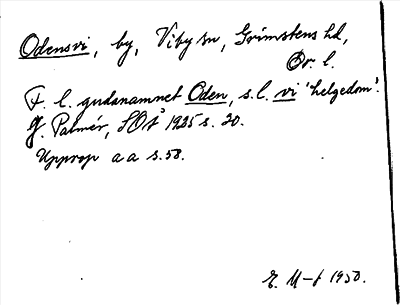 Odensvi, by, Viby sn, Grimstens hd,
Ör. l.
F. l. gudanamnet Oden, s.l. vi 'helgedom'.
J. Palmér, SOÅ 1925 s. 20.
Upprop a a s. 58.
E. M-f 1950.